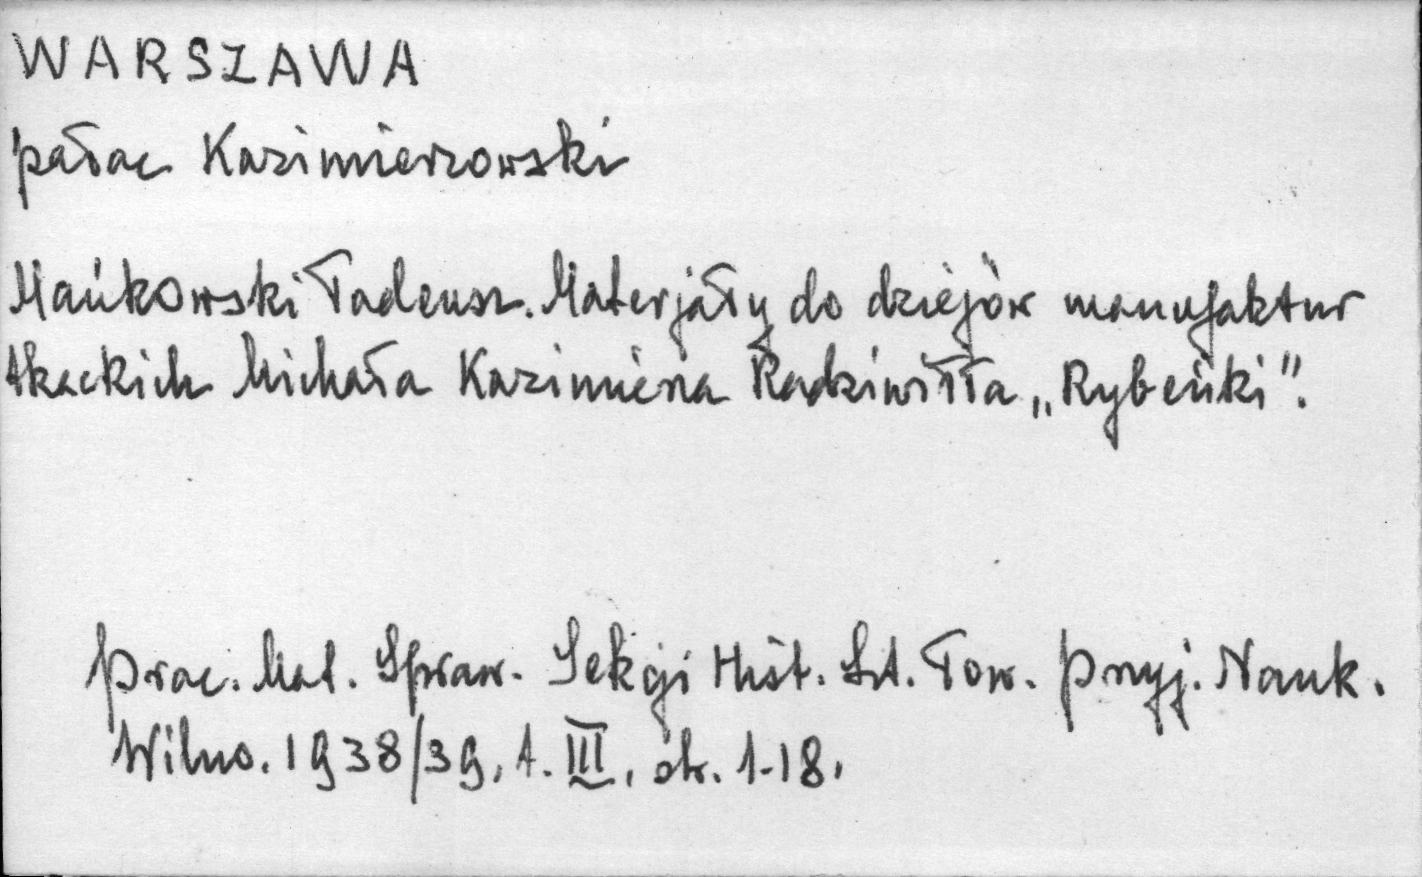 WARSZAWA
pałac Kazimierzowski
Mańkowski Tadeusz. Materjały do dziejów manufaktur
tkackich Michała Kazimierza Radziwiłła „Rybeńki”.
Prac. Mat. Spraw. Sekcji Hist. Szt. Tow. Przyj. Nauk.
Wilno. 1938/39, t. III, str. 1-18.